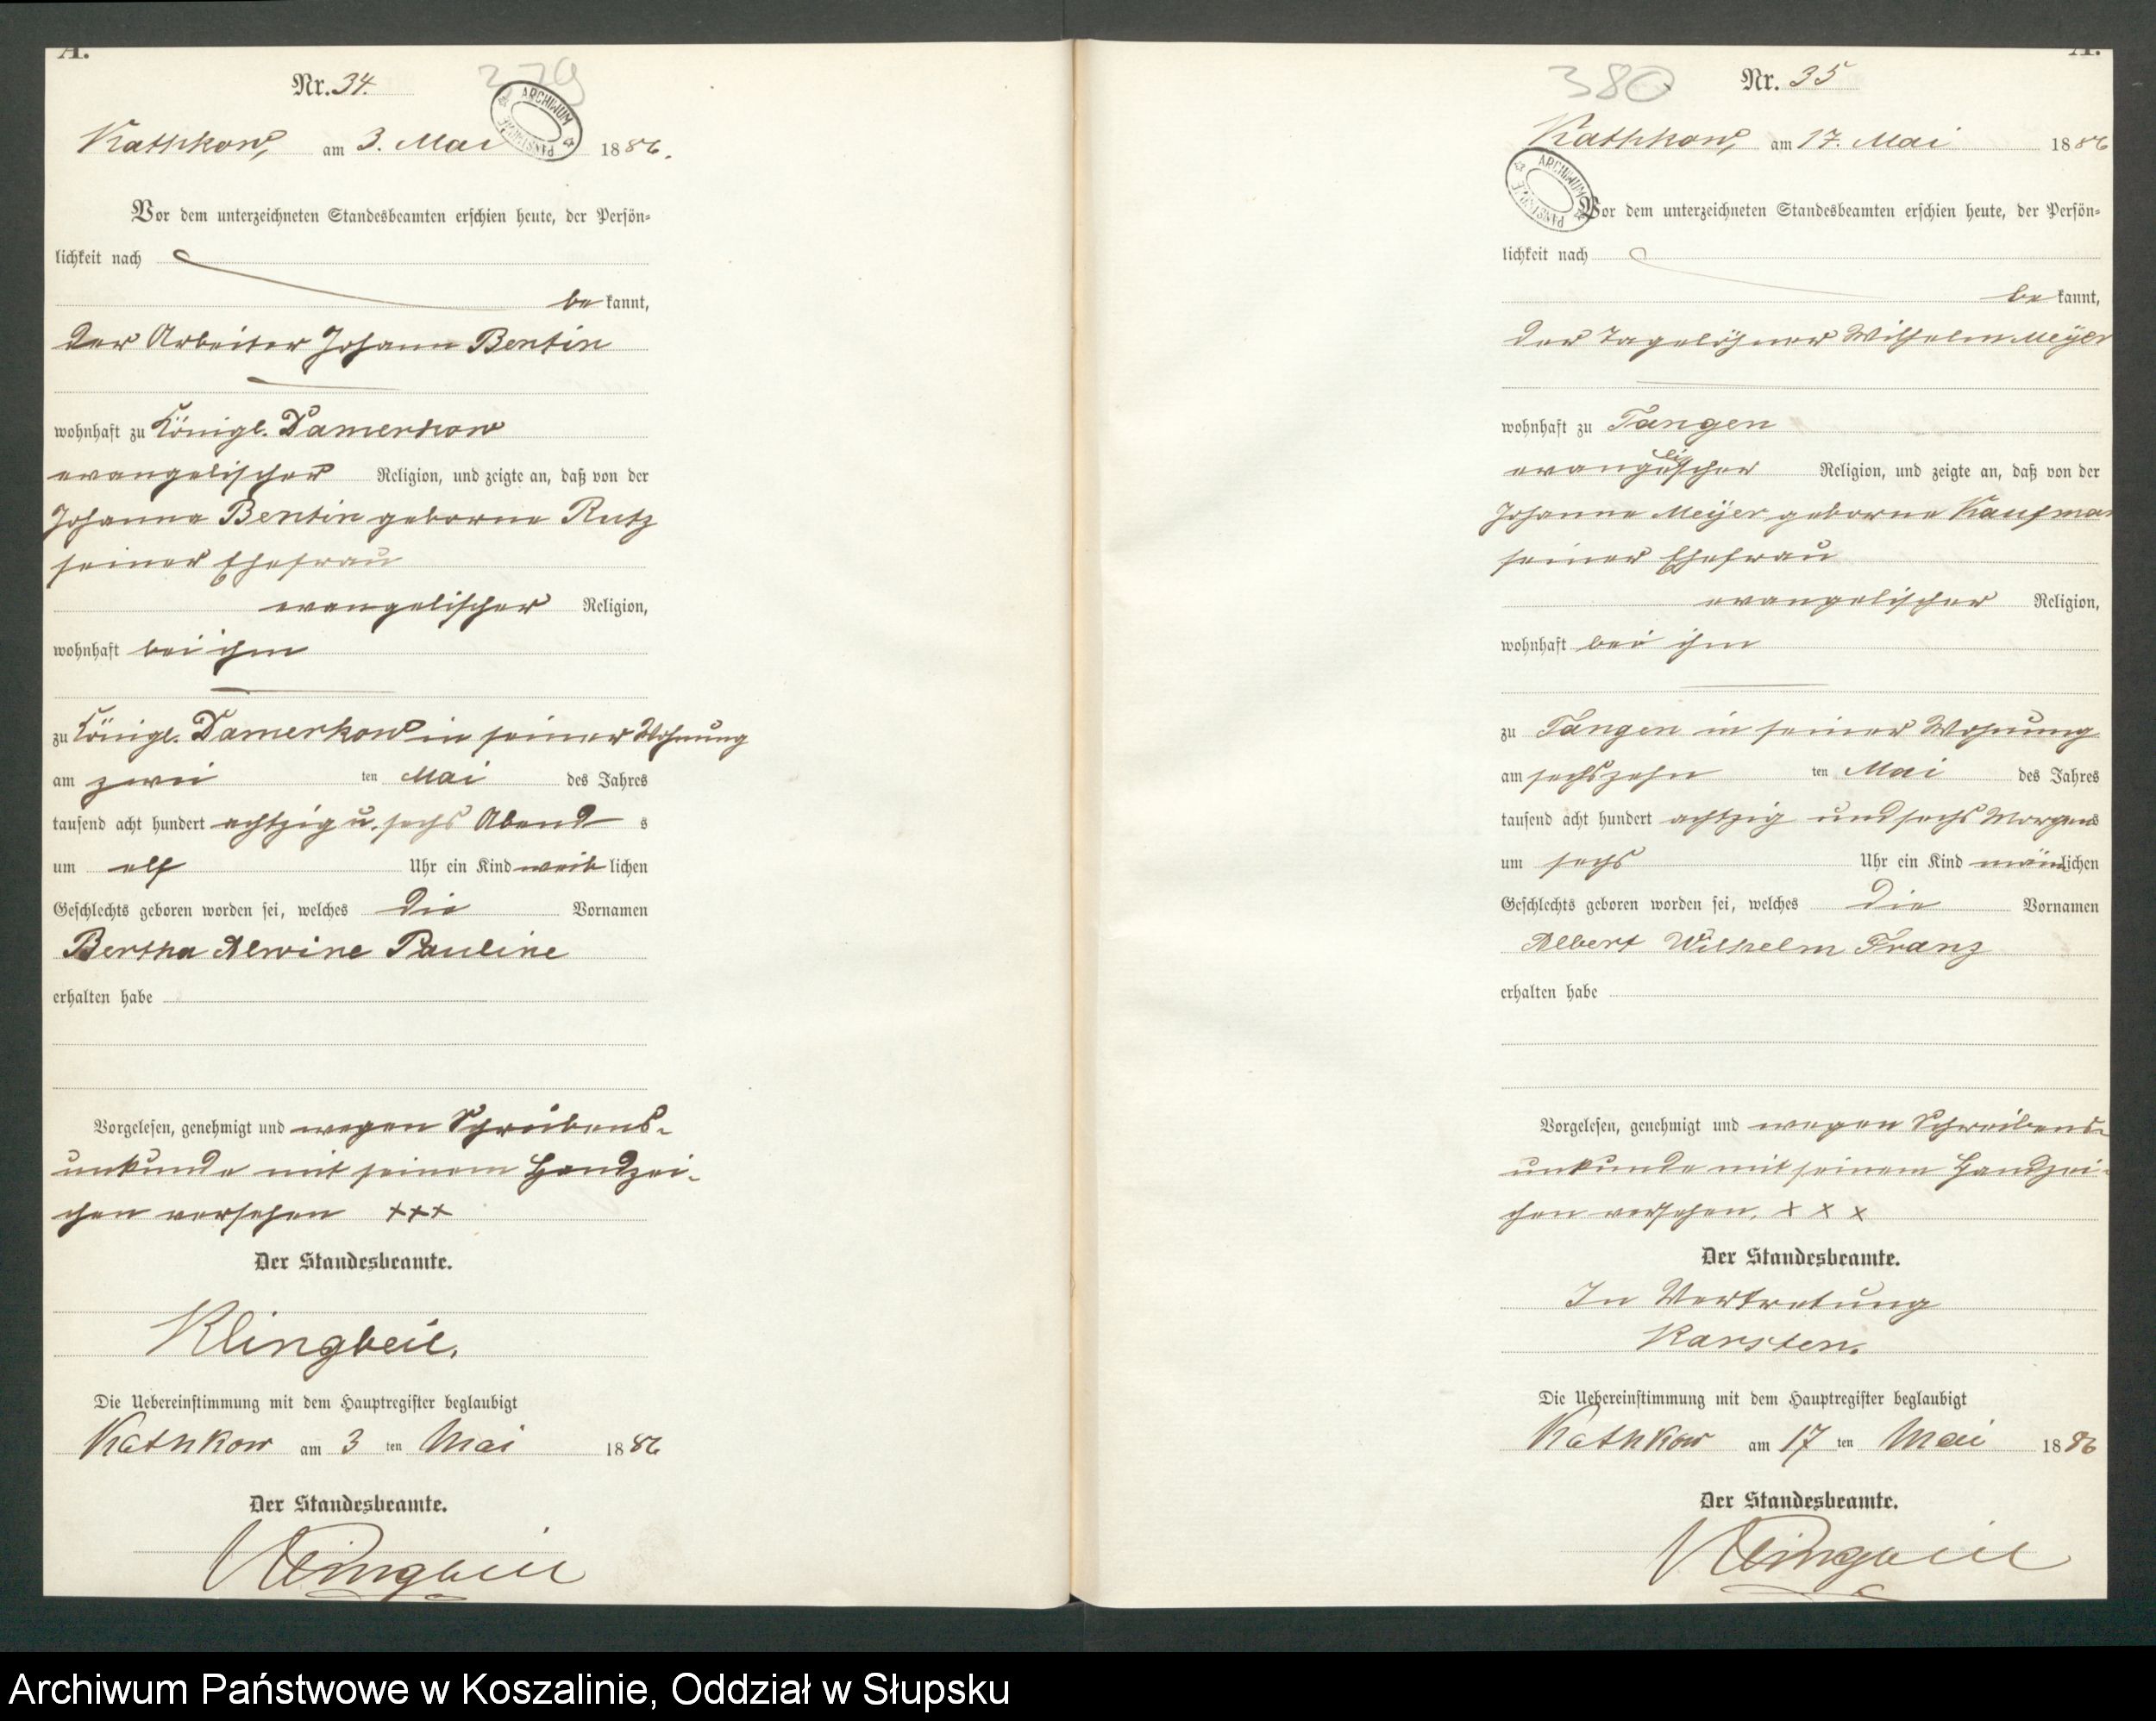 A.
Nr. 34.
279
ARCHIWUM PAŃSTWOWE
Kathkow, am 3. Mai 1886.
Vor dem unterzeichneten Standesbeamten erschien heute, der Persön-
lichkeit nach
be kannt,
der Arbeiter Johann Bentin
wohnhaft zu Königl. Damerkow
evangelischer Religion, und zeigte an, daß von der
Johanna Bentin geborne Rutz
seiner Ehefrau
evangelischer Religion,
wohnhaft bei ihm
zu Königl. Damerkow in seiner Wohnung
am zwei ten Mai des Jahres
tausend acht hundert achtzig u. sechs Abend s
um elf Uhr ein Kind weib lichen
Geschlechts geboren worden sei, welches die Vornamen
Bertha Alwine Pauline
erhalten habe
Vorgelesen, genehmigt und wegen Schreibens-
unkunde mit seinem Handzei-
chen versehen +++
Der Standesbeamte.
Klingbeil.
Die Uebereinstimmung mit dem Hauptregister beglaubigt
Kathkow am 3 ten Mai 1886
Der Standesbeamte.
Klingbeil
A.
380
Nr. 35
Kathkow, am 17. Mai 1886
ARCHIWUM PAŃSTWOWE
Vor dem unterzeichneten Standesbeamten erschien heute, der Persön-
lichkeit nach
be kannt,
der Tagelöhner Wilhelm Meÿer
wohnhaft zu Tangen
evangelischer Religion, und zeigte an, daß von der
Johanne Meÿer geborne Kaufman
seiner Ehefrau
evangelischer Religion,
wohnhaft bei ihm
zu Tangen in seiner Wohnung
am sechszehn ten Mai des Jahres
tausend acht hundert achtzig und sechs Morgens
um sechs Uhr ein Kind männlichen
Geschlechts geboren worden sei, welches die Vornamen
Albert Wilhelm Franz
erhalten habe
Vorgelesen, genehmigt und wegen Schreibens-
unkunde mit seinem Handzei-
chen versehen. + + +
Der Standesbeamte.
In Vertretung
Karsten.
Die Uebereinstimmung mit dem Hauptregister beglaubigt
Kathkow am 17 ten Mai 1886
Der Standesbeamte.
Klingbeil
Archiwum Państwowe w Koszalinie, Oddział w Słupsku